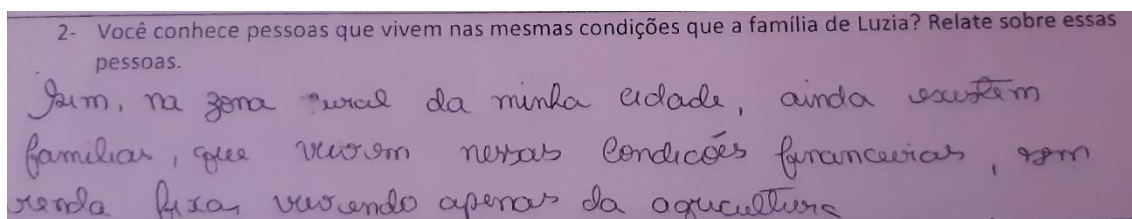 2- Você conhece pessoas que vivem nas mesmas condições que a família de Luzia? Relate sobre essas
pessoas.
Sim, na zona rural da minha cidade, ainda existem
famílias, que vivem nessas condições financeiras, sem
renda fixa, vivendo apenas da agricultura